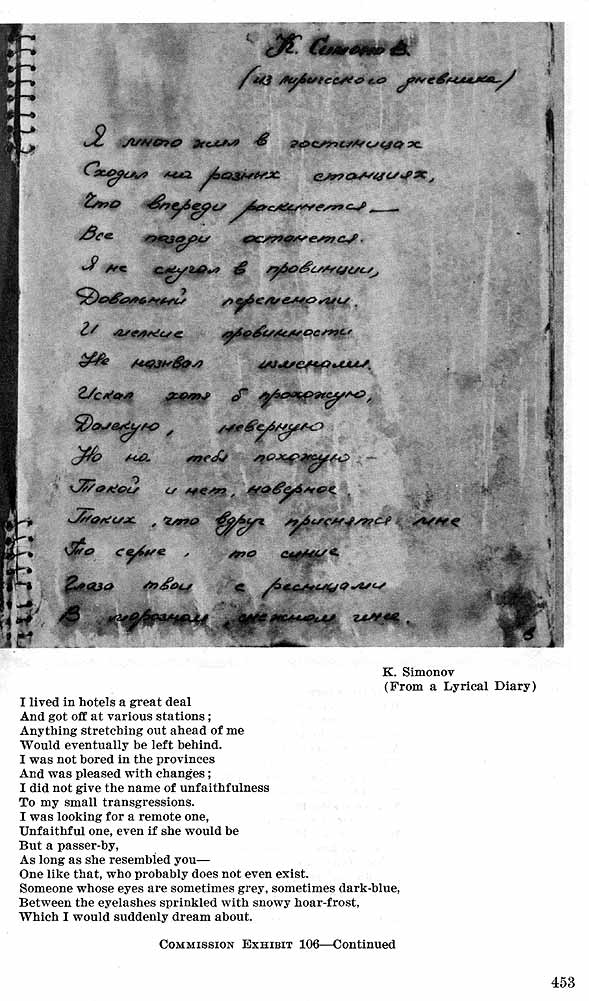 К. Симонов.
(из лирического дневника)
Я много жил в гостиницах
Сходил на разных станциях,
Что впереди раскинется —
Все позади останется.
Я не скучал в провинции,
Довольный переменами.
И мелкие провинности
Не называл изменами.
Искал хотя б прохожую,
Далекую, неверную
Но на тебя похожую —
Такой и нет, наверное.
Таких, что вдруг приснятся мне
То серые, то синие
Глаза твои с ресницами
В морозном, снежном инее.
K. Simonov
(From a Lyrical Diary)
I lived in hotels a great deal
And got off at various stations;
Anything stretching out ahead of me
Would eventually be left behind.
I was not bored in the provinces
And was pleased with changes;
I did not give the name of unfaithfulness
To my small transgressions.
I was looking for a remote one,
Unfaithful one, even if she would be
But a passer-by,
As long as she resembled you—
One like that, who probably does not even exist.
Someone whose eyes are sometimes grey, sometimes dark-blue,
Between the eyelashes sprinkled with snowy hoar-frost,
Which I would suddenly dream about.
COMMISSION EXHIBIT 106—Continued
453